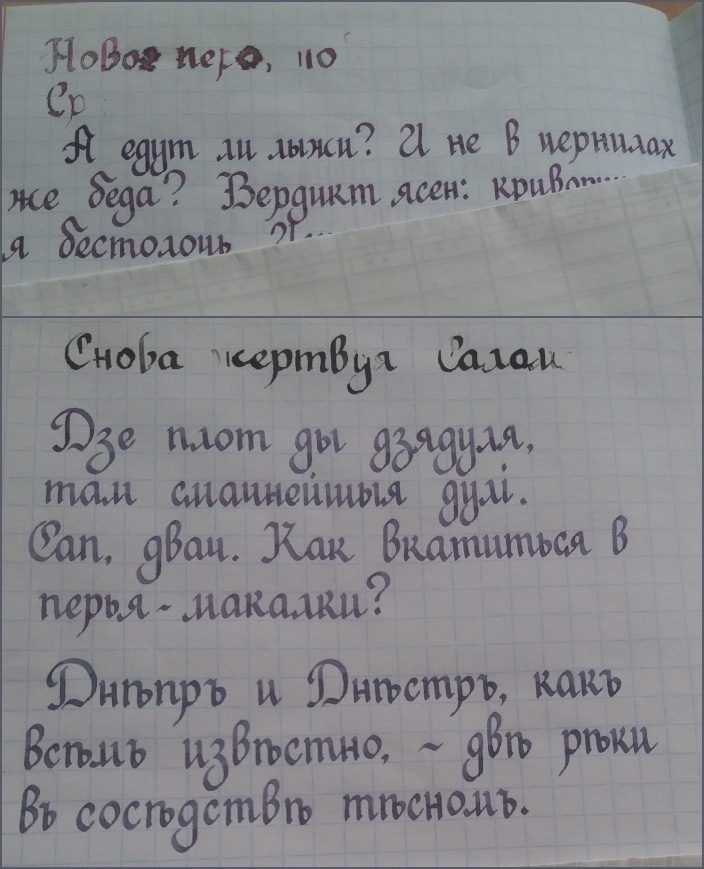 Новое перо, но
Ср
А едут ли лыжи? И не в чернилах
же беда? Вердикт ясен:
я бестолочь
Снова жертвуя
Дзе плот ды дзядуля,
там смачнейшыя дулі.
Сап, двач. Как вкатиться в
перья-макалки?
Днѣпръ и Днѣстръ, какъ
всѣмъ извѣстно, ~ двѣ рѣки
въ сосѣдствѣ тѣсномъ.